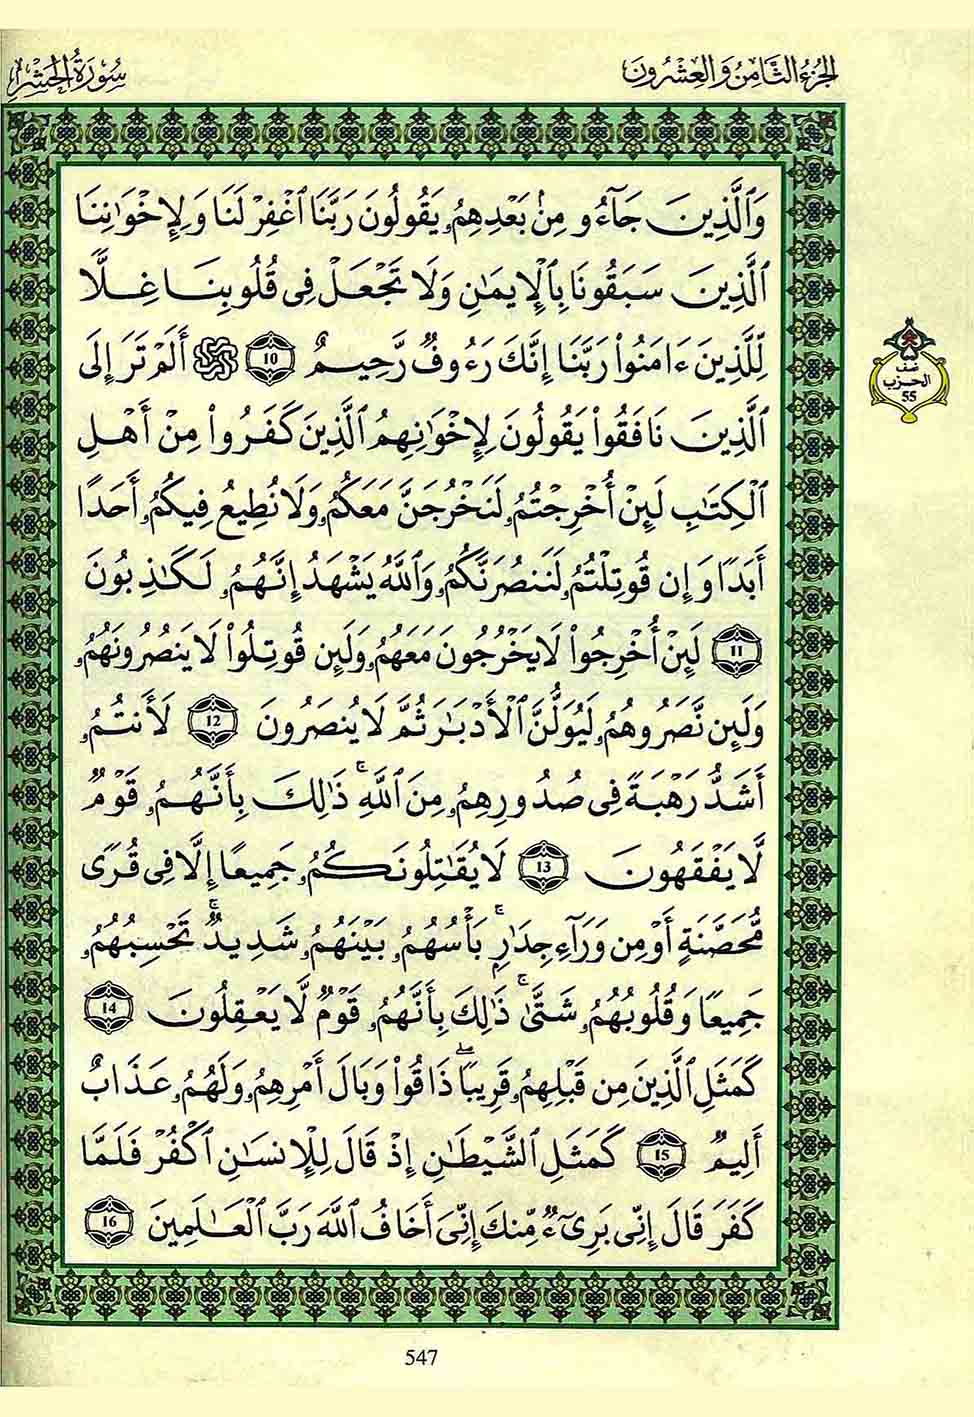 الجزء الثامن والعشرون
سورة الحشر
وَٱلَّذِينَ جَآءُو مِنۢ بَعْدِهِمُۥ يَقُولُونَ رَبَّنَا ٱغْفِرْ لَنَا وَلِإِخْوَٰنِنَا
ٱلَّذِينَ سَبَقُونَا بِٱلْإِيمَٰنِ وَلَا تَجْعَلْ فِى قُلُوبِنَا غِلًّا
لِّلَّذِينَ ءَامَنُوا۟ رَبَّنَآ إِنَّكَ رَءُوفٌ رَّحِيمٌ 10 ۞ أَلَمْ تَرَ إِلَى
نصف
الحزب
55
ٱلَّذِينَ نَافَقُوا۟ يَقُولُونَ لِإِخْوَٰنِهِمُ ٱلَّذِينَ كَفَرُوا۟ مِنْ أَهْلِ
ٱلْكِتَٰبِ لَئِنْ أُخْرِجْتُمُۥ لَنَخْرُجَنَّ مَعَكُمُۥ وَلَا نُطِيعُ فِيكُمُۥ أَحَدًا
أَبَدًا وَإِن قُوتِلْتُمُۥ لَنَنصُرَنَّكُمُۥ وَٱللَّهُ يَشْهَدُ إِنَّهُمُۥ لَكَٰذِبُونَ
11 لَئِنْ أُخْرِجُوا۟ لَا يَخْرُجُونَ مَعَهُمُۥ وَلَئِن قُوتِلُوا۟ لَا يَنصُرُونَهُمُۥ
وَلَئِن نَّصَرُوهُمُۥ لَيُوَلُّنَّ ٱلْأَدْبَٰرَ ثُمَّ لَا يُنصَرُونَ 12 لَأَنتُمُۥ
أَشَدُّ رَهْبَةً فِى صُدُورِهِمُۥ مِنَ ٱللَّهِ ۚ ذَٰلِكَ بِأَنَّهُمُۥ قَوْمٌ
لَّا يَفْقَهُونَ 13 لَا يُقَٰتِلُونَكُمُۥ جَمِيعًا إِلَّا فِى قُرًى
مُّحَصَّنَةٍ أَوْ مِن وَرَآءِ جِدَٰرٍۭ ۚ بَأْسُهُمُۥ بَيْنَهُمُۥ شَدِيدٌ ۚ تَحْسِبُهُمُۥ
جَمِيعًا وَقُلُوبُهُمُۥ شَتَّىٰ ۚ ذَٰلِكَ بِأَنَّهُمُۥ قَوْمٌ لَّا يَعْقِلُونَ 14
كَمَثَلِ ٱلَّذِينَ مِن قَبْلِهِمُۥ قَرِيبًا ۖ ذَاقُوا۟ وَبَالَ أَمْرِهِمُۥ وَلَهُمُۥ عَذَابٌ
أَلِيمٌ 15 كَمَثَلِ ٱلشَّيْطَٰنِ إِذْ قَالَ لِلْإِنسَٰنِ ٱكْفُرْ فَلَمَّا
كَفَرَ قَالَ إِنِّى بَرِىٓءٌ مِّنكَ إِنِّىَ أَخَافُ ٱللَّهَ رَبَّ ٱلْعَٰلَمِينَ 16
547